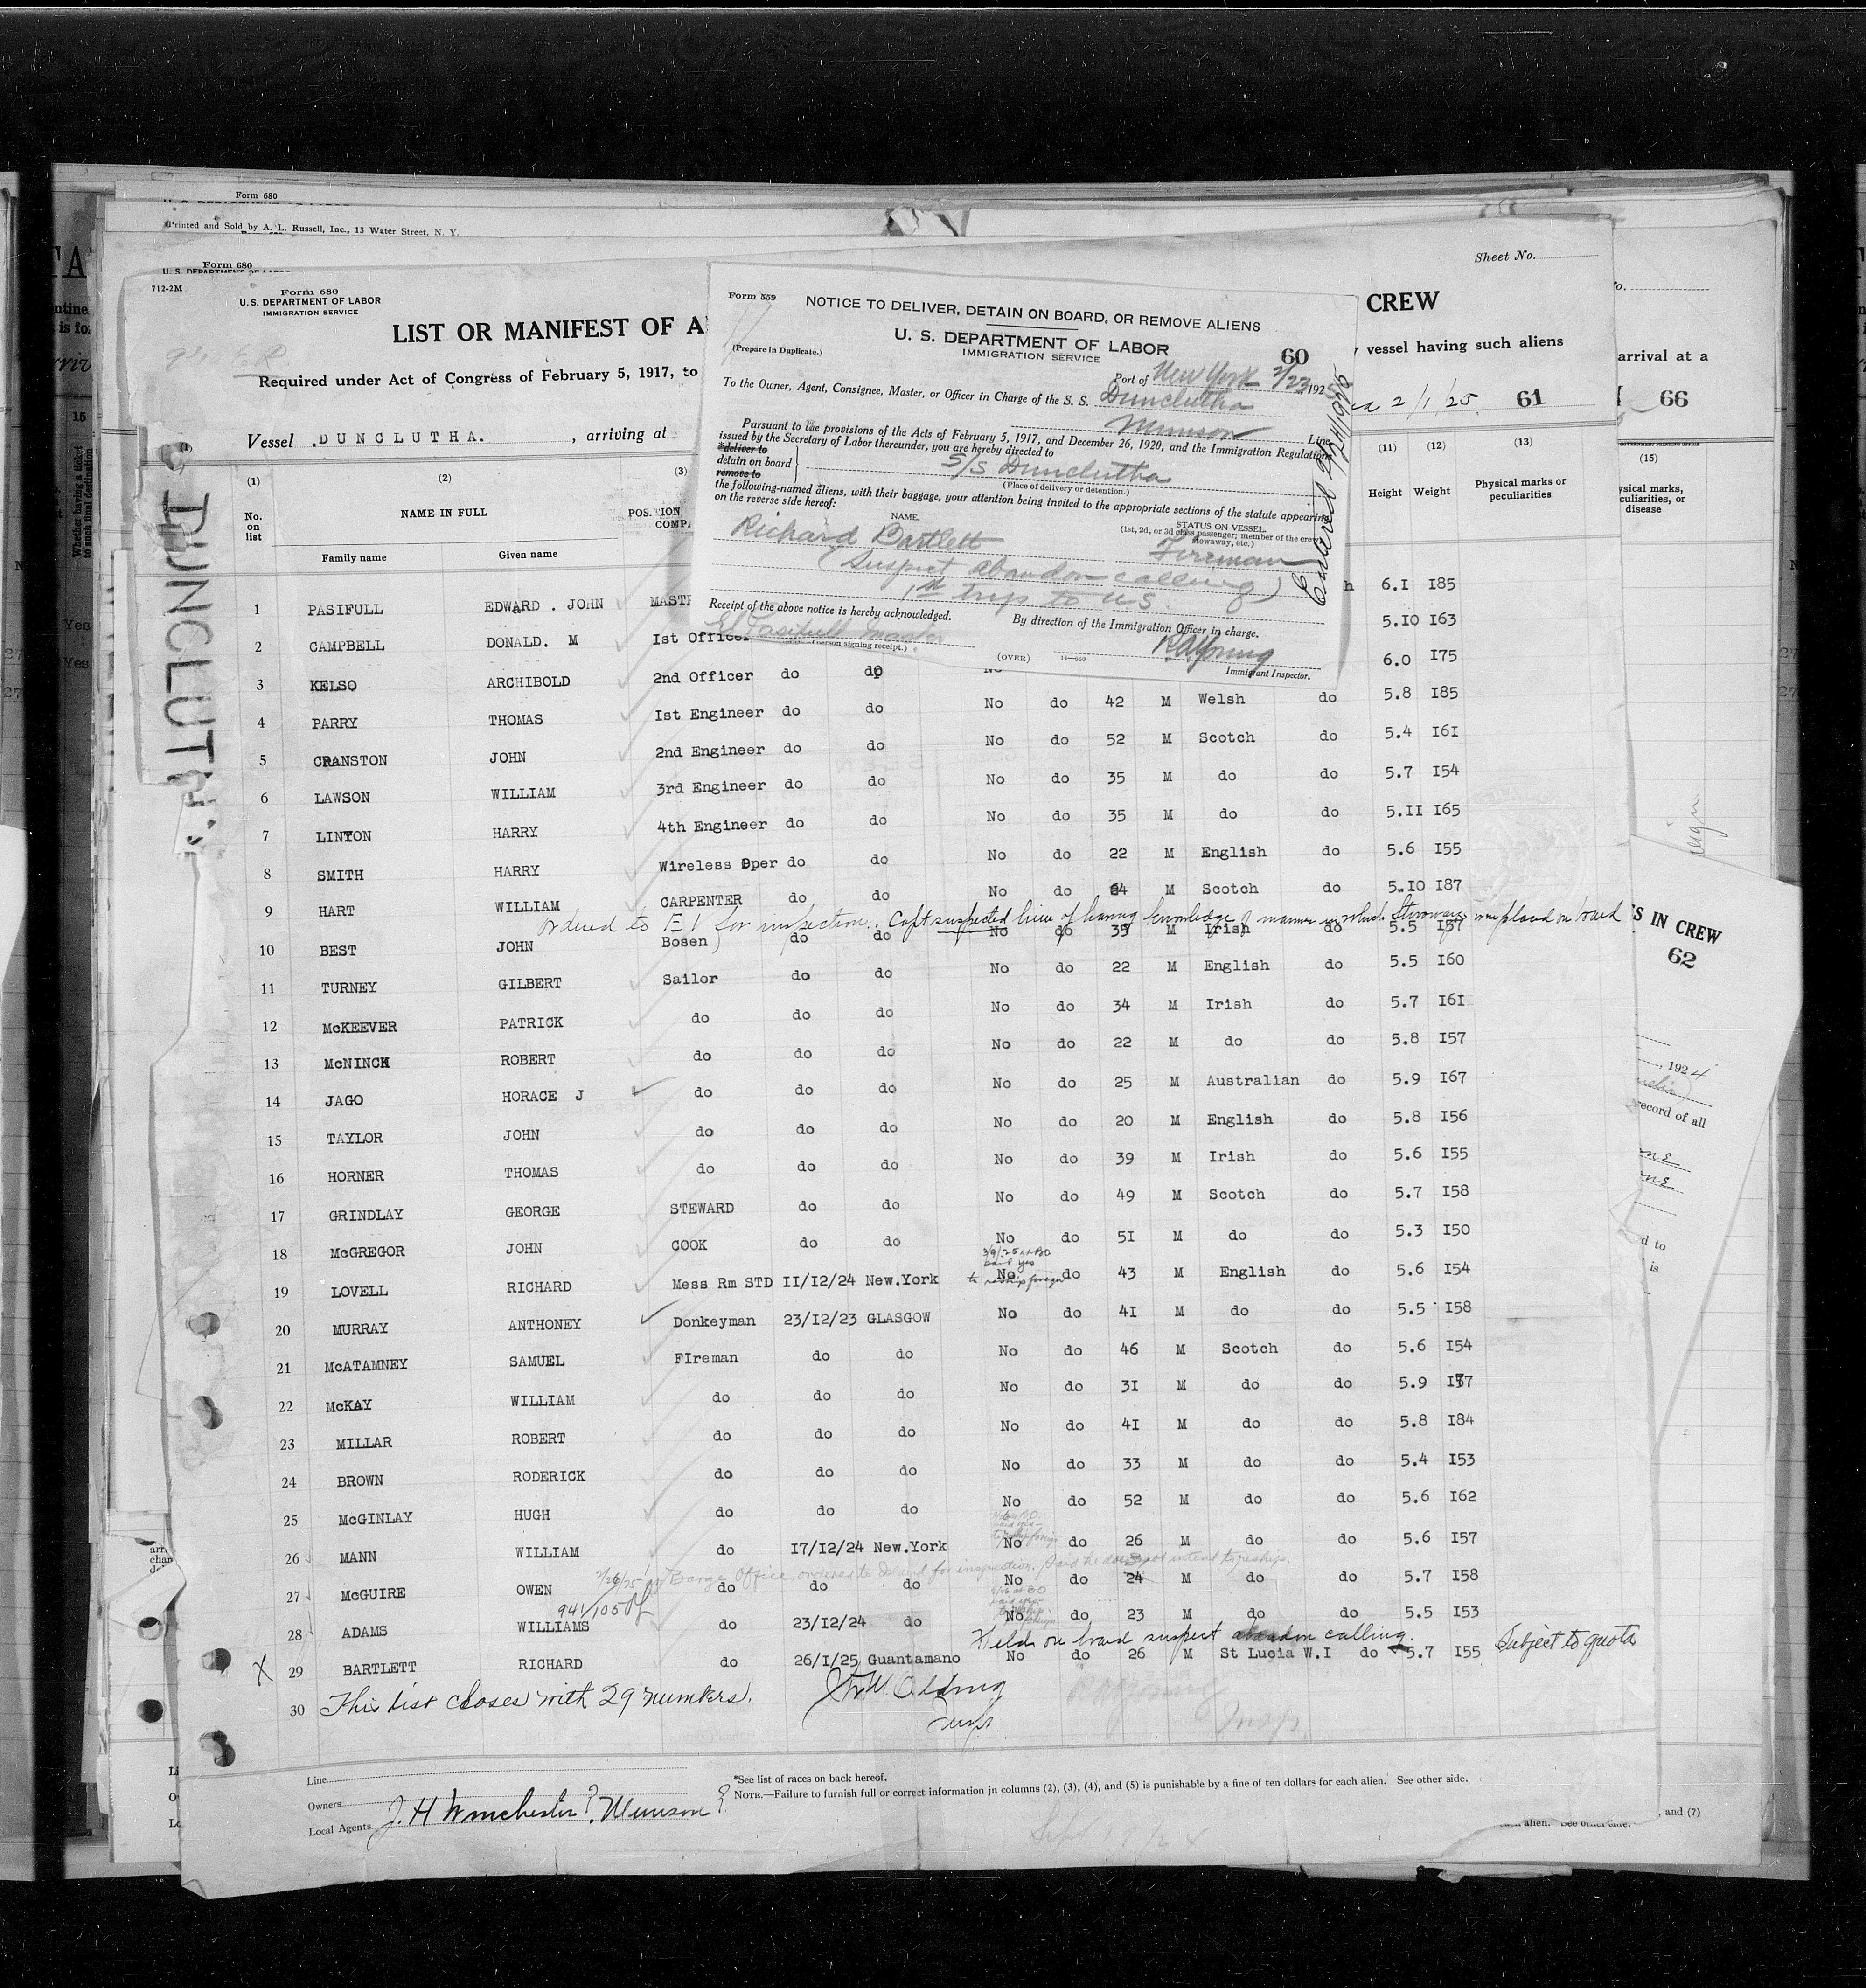 Form 680
Printed and Sold by A. L. Russell, Inc., 13 Water Street, N. Y.
Form 680
Sheet No.
712-2M
Form 680
U.S. DEPARTMENT OF LABOR
IMMIGRATION SERVICE
LIST OR MANIFEST OF A
CREW
Required under Act of Congress of February 5, 1917, to
vessel having such aliens
arrival at a
2/1/25
61
66
Vessel .DUNCLUTHA. , arriving at
DUNCLUTHA
Form 559
NOTICE TO DELIVER, DETAIN ON BOARD, OR REMOVE ALIENS
U. S. DEPARTMENT OF LABOR
IMMIGRATION SERVICE
(Prepare in Duplicate.)
60
Port of New York 2/23, 1925
To the Owner, Agent, Consignee, Master, or Officer in Charge of the S. S. Dunclutha
Munson Line
Pursuant to the provisions of the Acts of February 5, 1917, and December 26, 1920, and the Immigration Regulations
issued by the Secretary of Labor thereunder, you are hereby directed to
*deliver to
detain on board
remove to
S/S Dunclutha
(Place of delivery or detention.)
the following-named aliens, with their baggage, your attention being invited to the appropriate sections of the statute appearing
on the reverse side hereof:
NAME.
STATUS ON VESSEL.
(1st, 2d, or 3d class passenger; member of the crew,
stowaway, etc.)
Richard Bartlett Fireman
(Suspect abandon calling)
1st trip to U.S.
Receipt of the above notice is hereby acknowledged.
By direction of the Immigration Officer in charge.
Pasifull master
(Person signing receipt.)
RAYoung
(OVER)
Immigrant Inspector.
Entered 2/24/1925
(1) (2) (3) (11) (12) (13) (15)
No. on list
NAME IN FULL
Family name Given name
POSITION
COMPA
Height Weight
Physical marks or peculiarities
1 PASIFULL EDWARD . JOHN MASTE 6.I I85
2 CAMPBELL DONALD. M Ist Officer 5.IO I63
3 KELSO ARCHIBOLD 2nd Officer do do 6.0 I75
4 PARRY THOMAS Ist Engineer do do No do 42 M Welsh do 5.8 I85
5 CRANSTON JOHN 2nd Engineer do do No do 52 M Scotch do 5.4 I6I
6 LAWSON WILLIAM 3rd Engineer do do No do 35 M do do 5.7 I54
7 LINTON HARRY 4th Engineer do do No do 35 M do do 5.II I65
8 SMITH HARRY Wireless Oper do do No do 22 M English do 5.6 I55
9 HART WILLIAM CARPENTER do do No do 64 M Scotch do 5.IO I87
ordered to E I for inspection. Capt suspected him of having knowledge of manner in which Stowaways were placed on board
10 BEST JOHN Bosen do do No do 35 M Irish do 5.5 I57
11 TURNEY GILBERT Sailor do do No do 22 M English do 5.5 I60
12 McKEEVER PATRICK do do do No do 34 M Irish do 5.7 I6I
13 McNINCH ROBERT do do do No do 22 M do do 5.8 I57
14 JAGO HORACE J do do do No do 25 M Australian do 5.9 I67
15 TAYLOR JOHN do do do No do 20 M English do 5.8 I56
16 HORNER THOMAS do do do No do 39 M Irish do 5.6 I55
17 GRINDLAY GEORGE STEWARD do do No do 49 M Scotch do 5.7 I58
18 McGREGOR JOHN COOK do do No do 5I M do do 5.3 I50
19 LOVELL RICHARD Mess Rm STD II/I2/24 New.York No do 43 M English do 5.6 I54
20 MURRAY ANTHONEY Donkeyman 23/I2/23 GLASGOW No do 4I M do do 5.5 I58
21 McATAMNEY SAMUEL FIreman do do No do 46 M Scotch do 5.6 I54
22 McKAY WILLIAM do do do No do 3I M do do 5.9
23 MILLAR ROBERT do do do No do 4I M do do 5.8 I84
24 BROWN RODERICK do do do No do 33 M do do 5.4 I53
25 McGINLAY HUGH do do do No do 52 M do do 5.6 I62
26 MANN WILLIAM do I7/I2/24 New.York No do 26 M do do 5.6 I57
2/26/25 at Barge Office ordered to Island for inspection. Said he does not intend to reship.
27 McGUIRE OWEN do do do No do 24 M do do 5.7 I58
941/105
28 ADAMS WILLIAMS do 23/I2/24 do No do 23 M do do 5.5 I53
Held on board suspect abandon calling. Subject to quota
X 29 BARTLETT RICHARD do 26/I/25 Guantamano No do 26 M St Lucia W.I do 5.7 I55
30 This list closes with 29 numbers.
RAYoung
Insp.
Line
Owners
Local Agents J. H Winchester ?. Munson ?
*See list of races on back hereof.
NOTE.—Failure to furnish full or correct information in columns (2), (3), (4), and (5) is punishable by a fine of ten dollars for each alien. See other side.
S IN CREW
62
, 1924
record of all
, and (7)